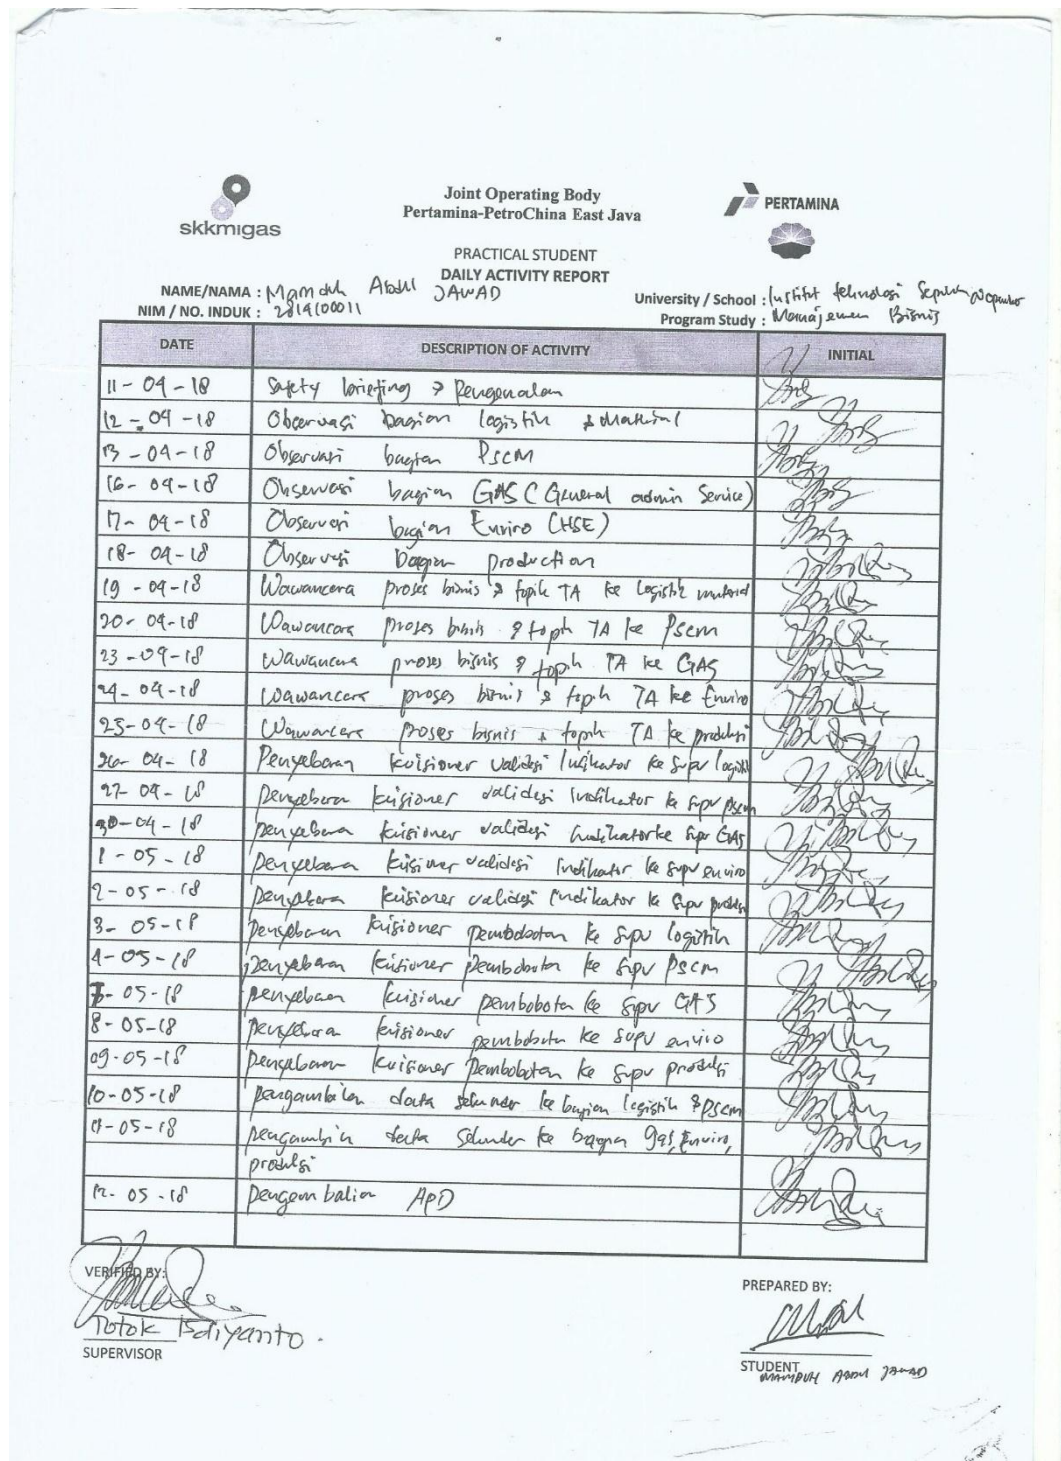 skkmigas
Joint Operating Body
Pertamina-PetroChina East Java
PERTAMINA
PRACTICAL STUDENT
DAILY ACTIVITY REPORT
NAME/NAMA : Mamduh Abdul JAWAD
NIM / NO. INDUK : 2814100011
University / School : Institut teknologi Sepuluh Nopember
Program Study : Manajemen Bisnis
DATE DESCRIPTION OF ACTIVITY INITIAL
11-04-18 Safety briefing & Pengenalan
12-04-18 Observasi bagian logistik & Material
13-04-18 Observasi bagian Pscm
16-04-18 Observasi bagian GAS (General admin Service)
17-04-18 Observasi bagian Enviro (HSE)
18-04-18 Observasi bagian production
19-04-18 Wawancara proses bisnis & topik TA ke logistik material
20-04-18 Wawancara proses bisnis & topik TA ke Pscm
23-04-18 Wawancara proses bisnis & topik TA ke GAS
24-04-18 Wawancara proses bisnis & topik TA ke Enviro
25-04-18 Wawancara proses bisnis & topik TA ke produksi
26-04-18 Penyebaran kuisioner validasi Indikator ke Supv logistik
27-04-18 penyebaran kuisioner validasi Indikator ke supv pscm
30-04-18 penyebaran kuisioner validasi Indikator ke supv GAS
1-05-18 penyebaran kuisioner validasi Indikator ke supv enviro
2-05-18 penyebaran kuisioner validasi Indikator ke supv produksi
3-05-18 penyebaran kuisioner pembobotan ke supv logistik
4-05-18 penyebaran kuisioner pembobotan ke supv Pscm
7-05-18 penyebaran kuisioner pembobotan ke supv GAS
8-05-18 penyebaran kuisioner pembobotan ke supv enviro
09-05-18 penyebaran kuisioner pembobotan ke supv produksi
10-05-18 pengambilan data sekunder ke bagian logistik & pscm
11-05-18 pengambiln data sekunder ke bagian gas, Enviro,
produksi
12-05-18 pengembalian APD
VERIFIED BY:
Totok Isdiyanto
SUPERVISOR
PREPARED BY:
STUDENT
MAMDUH ABDUL JAWAD